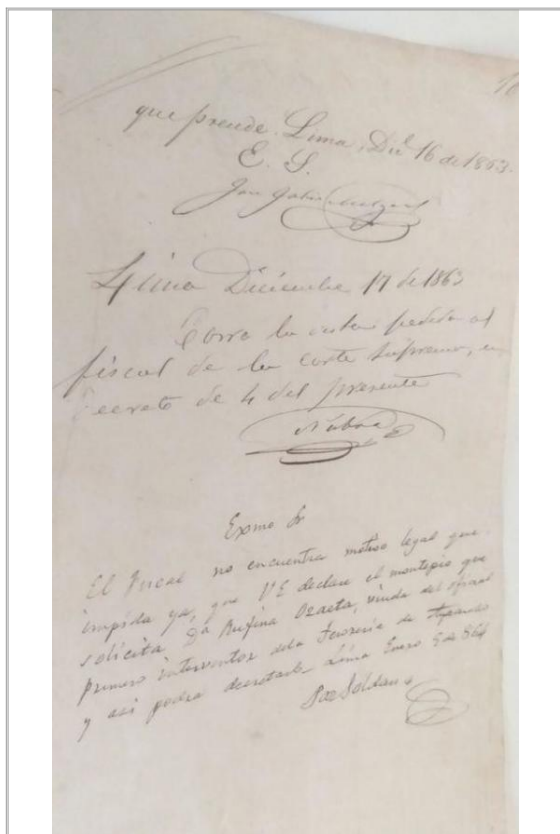 que prende. Lima, Dic.e 16 de 1863.
E. S.
José Gabriel
Lima Diciembre 17 de 1863
Corra la vista pedida al
fiscal de la corte suprema, en
decreto de 4 del presente
Exmo Sr
El Fiscal no encuentra motivo legal que
impida ya, que VE declare el montepio que
solicita Da Rufina Ozaeta, viuda del oficial
primero interventor dela Tesoreria de
y asi podrá decretarlo Lima Enero 5 de 864
Paz Soldan